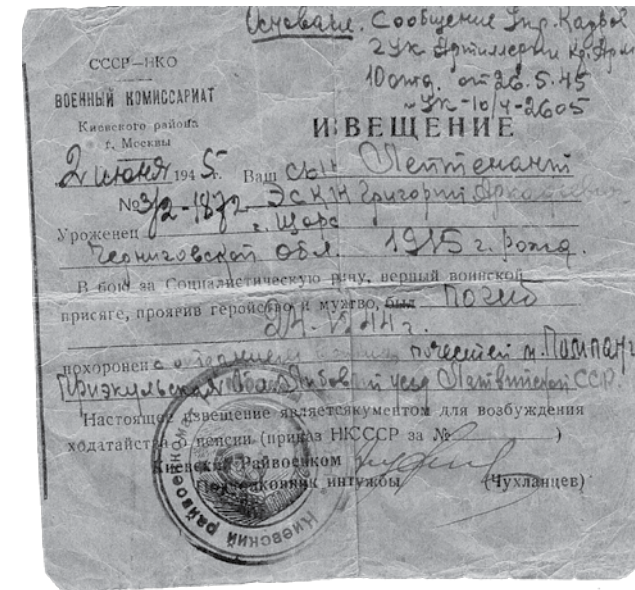 Основание. Сообщение Упр. Кадров
2 УК Артиллерии Кр. Арм
10 отд. от 26.5.45
СССР—НКО
№ УК-10/4-2605
ВОЕННЫЙ КОМИССАРИАТ
Киевского района
г. Москвы
ИЗВЕЩЕНИЕ
2 июня 1945г. Ваш сын Лейтенант
№3/2-1872 Эскин Григорий Аркадиевич
Уроженец г. Щорс
Черниговской обл. 1915 г. рожд.
В бою за Социалистическую родину, верный воинской
присяге, проявив геройство и мужество, был погиб
44 г.
похоронен с отданием почестей м. Пампали
Приэкульская Латвийской ССР.
Настоящее извещение является документом для возбуждения
ходатайства о пенсии (приказ НКСССР за № )
Киевский Райвоенком
Подполковник интсужбы (Чухланцев)
Киевский райвоенкомат